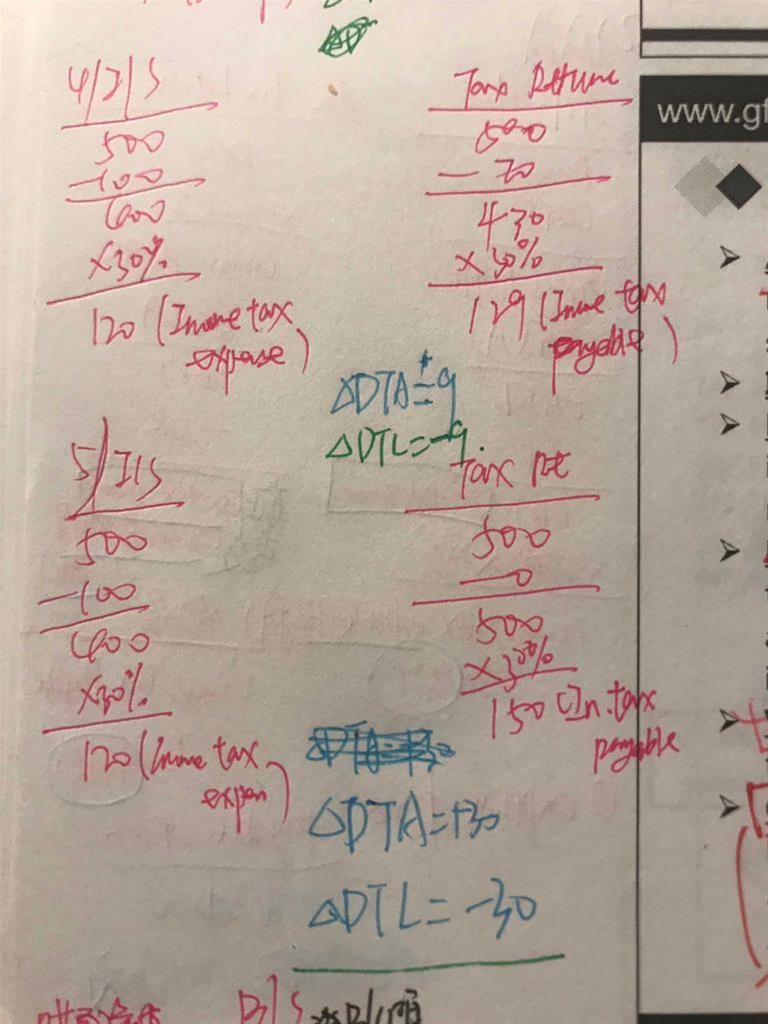 4/I/S
500
-100
400
×30%
120 (Income tax
expense)
Tax Return
500
- 70
430
×30%
129 (Income tax
payable)
△DTA=+9
△DTL=-9.
5/I/S
500
-100
400
×30%
120 (Income tax
expen)
Tax Ret
500
-0
500
×30%
150 (In.tax
payable
△DTA=+30
△DTL=-30
B/S
www.gf